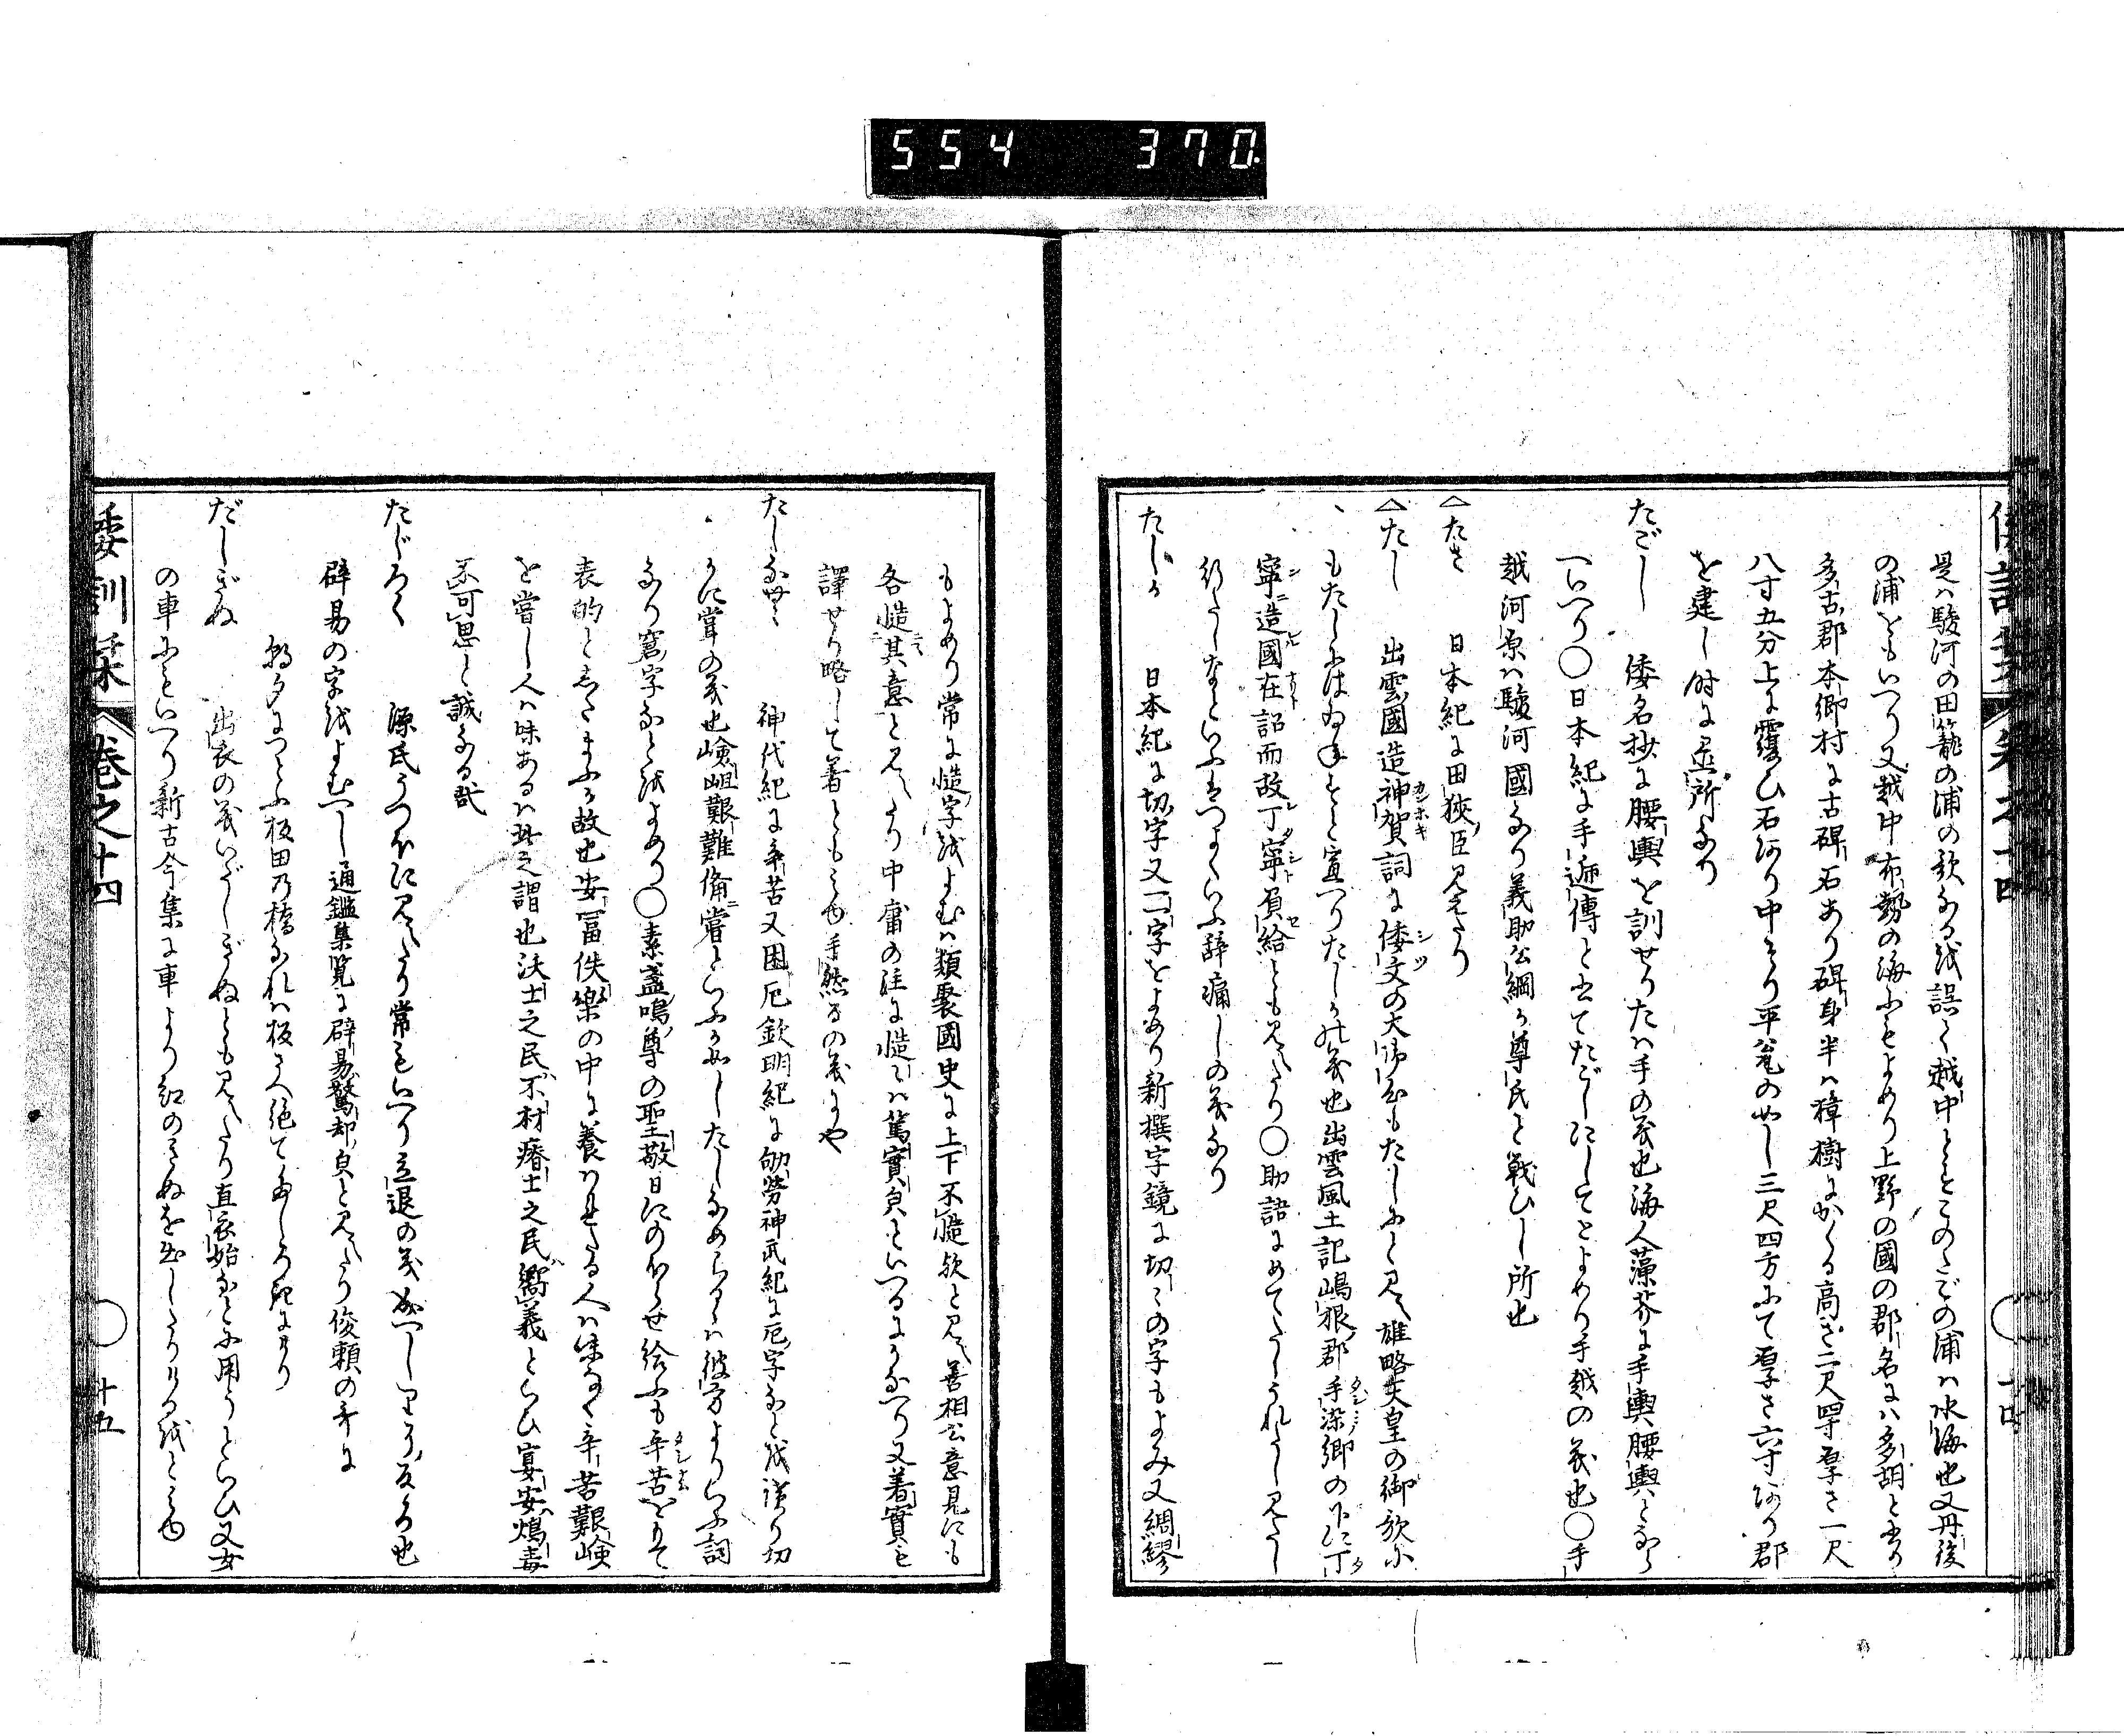 554 370
是ハ駿河の田籠の浦の歌なるを誤て越中とせり このたごの浦ハ水海也又丹後
の浦をもいへり又越中布勢の海にもよめり上野の國の郡名にハ多胡と書り
多古郡本郷村に古碑石あり碑身半ハ樟樹にかくる高さ二尺四寸厚さ一尺
八寸五分上に覆ひ石あり中そり平瓮の如し三尺四方にて厚さ六寸あり郡
を建し時に立所なり
たごし 倭名抄に腰輿を訓せりたハ手の義也海人藻芥に手輿腰輿となら
へいへり〇日本紀に手逓傳と書てたごしにしてとよめり手越の義也〇手
越河原ハ駿河國なり義助公綱か尊氏と戦ひし所也
△たさ 日本紀に田狹臣見えたり
△たし 出雲國造神賀詞に倭文の大御心もたしにと見え雄略天皇の御歌に
もたしにはゐねずと宣へりたしかの義也出雲風土記嶋根郡手染郷の下に丁
寧造國在詔而故丁寧負給とも見えたり〇助語にめでたしうれたし見たし
行たしなといふハつよくいふ辞痛しの義なり
たしか 日本紀に切字又一字をよめり新撰字鏡に切々の字もよみ又綢繆
もよめり常に慥字をよむハ類聚國史に上下不慥歟と見え善相公意見にも
各慥其意と見えたり中庸の注に慥々ハ篤實皃といへるにかなへり又着實も
譯せり略して著ともみゆ手然るの義にや
たしなむ 神代紀に辛苦又困厄欽明紀に劬勞神武紀に厄字などを訓り切
かに甞の義也嶮岨艱難備甞といふか如したしなめらるゝハ彼方よりいふ詞
なり窘字などをよめり〇素盞嗚尊の聖敬日にのぼらせ給ふも辛苦をもて
表的としたまふか故也安富佚樂の中に養ハれたる人ハ味なく辛苦艱嶮
を甞し人ハ味あるハ此之謂也沃土之民不材瘠土之民嚮義といひ宴安鴆毒
不可思と誠なる哉
たじろく 源氏うつほに見えたり常もいへり立退の義なへしりろ反ろ也
辟易の字をよむへし通鑑集覧に辟易驚却皃と見えたり俊頼の哥に
朝夕につたふ板田の橋なれハ板さへ絶てたしろきにけり
だしぎぬ 出衣の義いだしぎぬとも見えたり直衣始なとに用うといひ又女
の車にもいへり新古今集に車より紅のきぬを出したりけるをとみゆ
倭訓栞 卷之十四 〇 十五